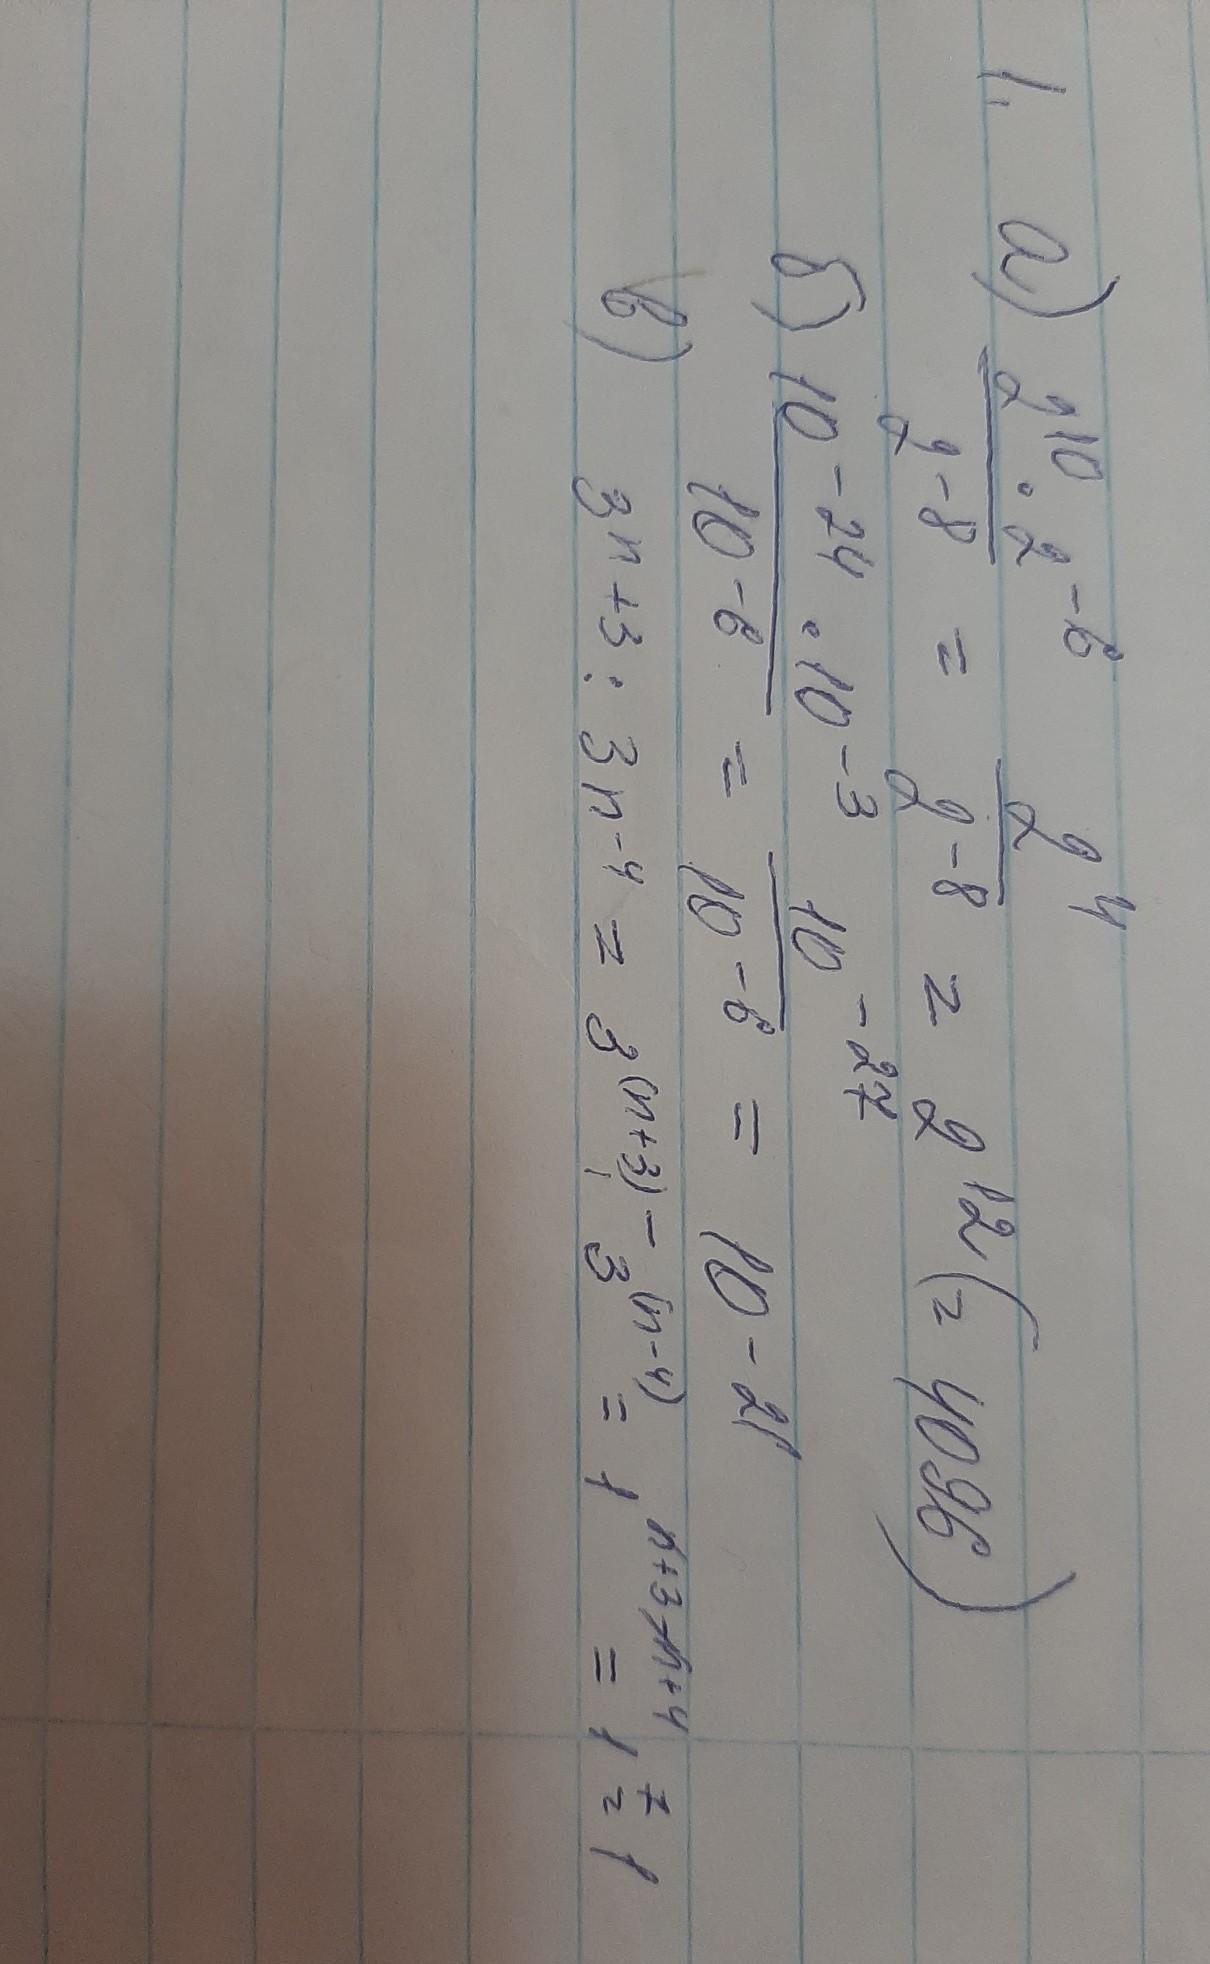 1. а) 2¹⁰ · 2⁻⁶ / 2⁻⁸ = 2⁴ / 2⁻⁸ = 2¹² (= 4096)
б) 10⁻²⁴ · 10⁻³ / 10⁻⁶ = 10⁻²⁷ / 10⁻⁶ = 10⁻²¹
в) 3ⁿ⁺³ : 3ⁿ⁻⁴ = 3⁽ⁿ⁺³⁾ ⁻ : 3⁽ⁿ⁻⁴⁾ = 1ⁿ⁺³⁻ⁿ⁺⁴ = 1⁷ = 1